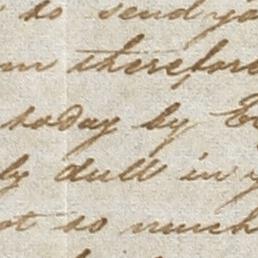 to send yo
m therefore
today by E
ly dull in y
ot so much